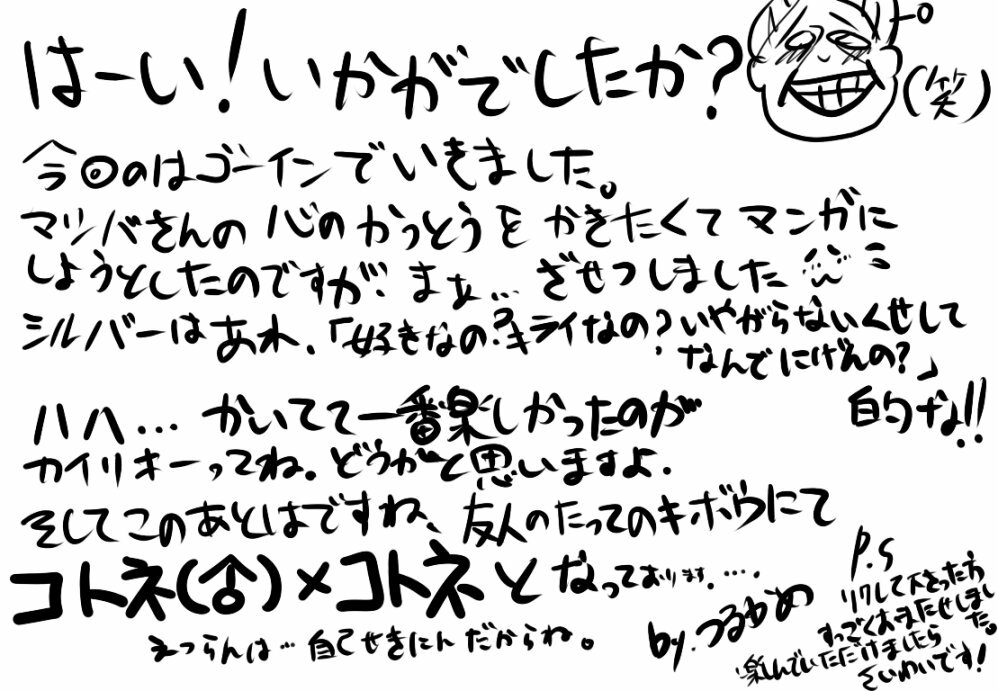 はーい!いかがでしたか?
(笑)
今回のはゴーインでいきました。
マツバさんの心のかっとうをかきたくてマンガに
しようとしたのですが、まぁ…ざせつしました
シルバーはあれ、「好きなの?キライなの?いやがらないくせして
なんでにげんの?」
的な!!
ハハ…かいてて一番楽しかったのが
カイリキーってね。どうかと思いますよ.
そしてこのあとはですね、友人のたってのキボウにて
コトネ(♂)×コトネとなっております.…
えつらんは…自己せきにんだからね。
by.つるかめ
P.S
リクして下さった方
すっごくおまたせしまし
た。
楽しんでいただけましたら
さいわいです!